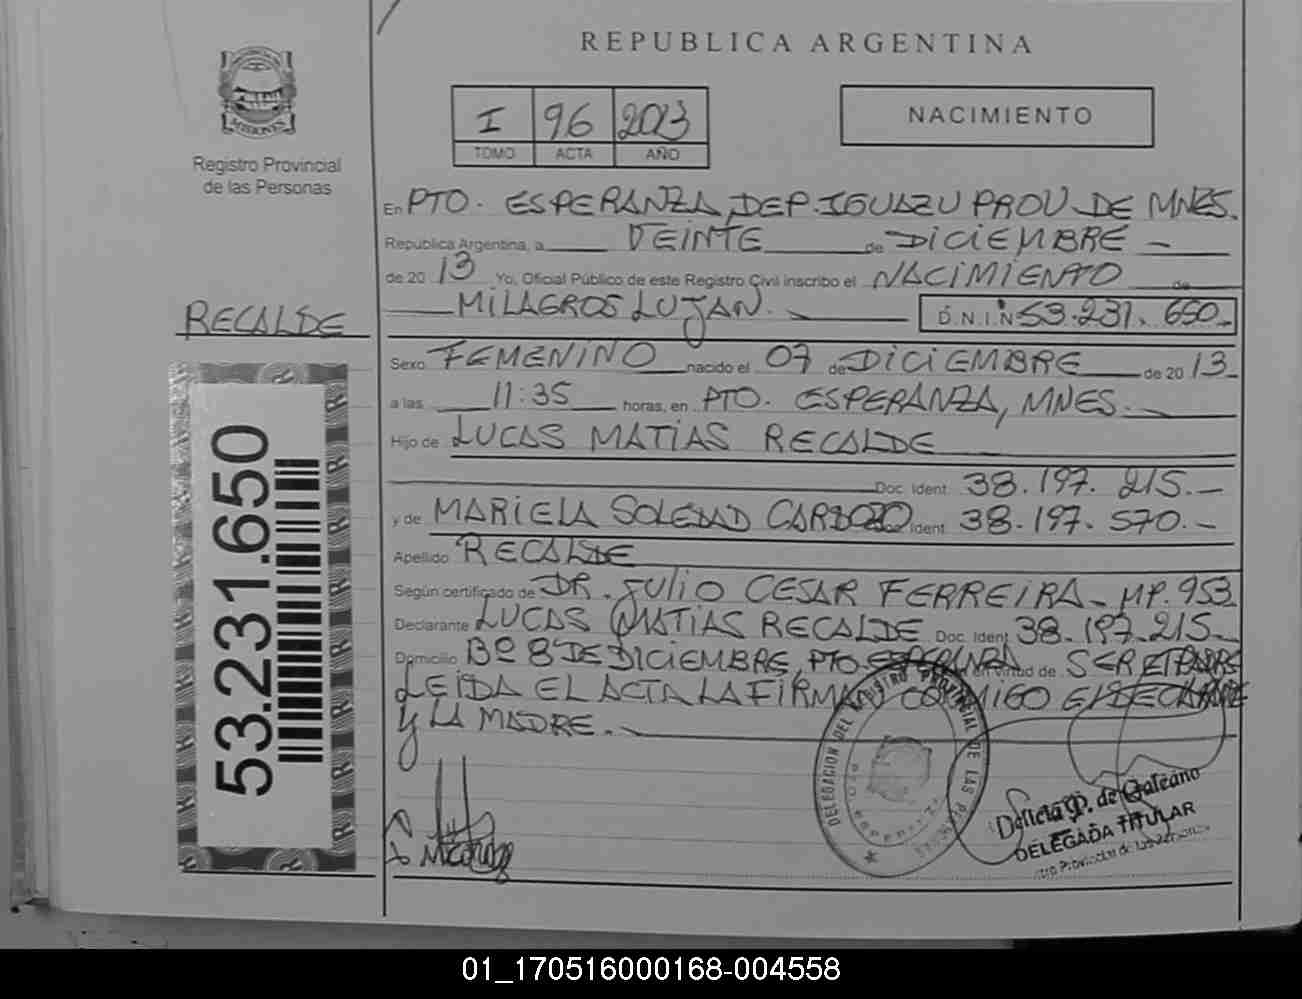 REPUBLICA ARGENTINA
MISIONES
Registro Provincial
de las Personas
I 96 2013
TOMO ACTA AÑO
NACIMIENTO
En PTO. ESPERANZA, DEP. IGUAZU PROV. DE MNES.
Republica Argentina, a VEINTE de DICIEMBRE
de 20 13 Yo, Oficial Público de este Registro Civil inscribo el NACIMIENTO de
MILAGROS LUJAN. D.N.I.Nº 53.231.650
RECALDE
Sexo FEMENINO nacido el 07 de DICIEMBRE de 20 13
a las 11:35 horas, en PTO. ESPERANZA, MNES.
Hijo de LUCAS MATIAS RECALDE
Doc. Ident. 38.197.215.-
y de MARIELA SOLEDAD CARDOZO Doc. Ident. 38.197.570.-
Apellido RECALDE
Según certificado de DR. JULIO CESAR FERREIRA - MP. 953
Declarante LUCAS MATIAS RECALDE Doc. Ident. 38.197.215-
Domicilio Bº 8 DE DICIEMBRE, PTO ESPERANZA en virtud de SER EL PADRE
LEIDA EL ACTA LA FIRMAN CONMIGO EL DECLARANTE
Y LA MADRE.
53.231.650
DELEGACION DEL REGISTRO PROVINCIAL DE LAS PERSONAS
Delicia P. de Galeano
DELEGADA TITULAR
Provincial de las Personas
01_170516000168-004558